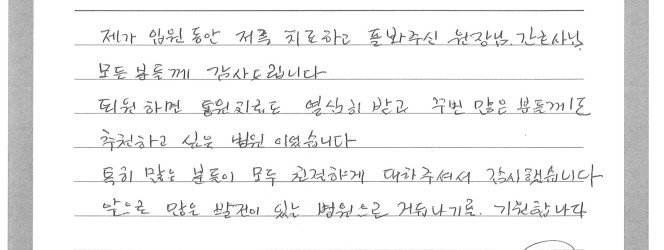 제가 입원동안 저를 치료하고 돌봐주신 원장님, 간호사님,
모든 분들께 감사드립니다
퇴원하면 통원치료도 열심히 받고 주변 많은 분들께도
추천하고 싶은 병원이었습니다
특히 많은 분들이 모두 친절하게 대해주셔서 감사했습니다
앞으로 많은 발전이 있는 병원으로 거듭나기를. 기원합니다